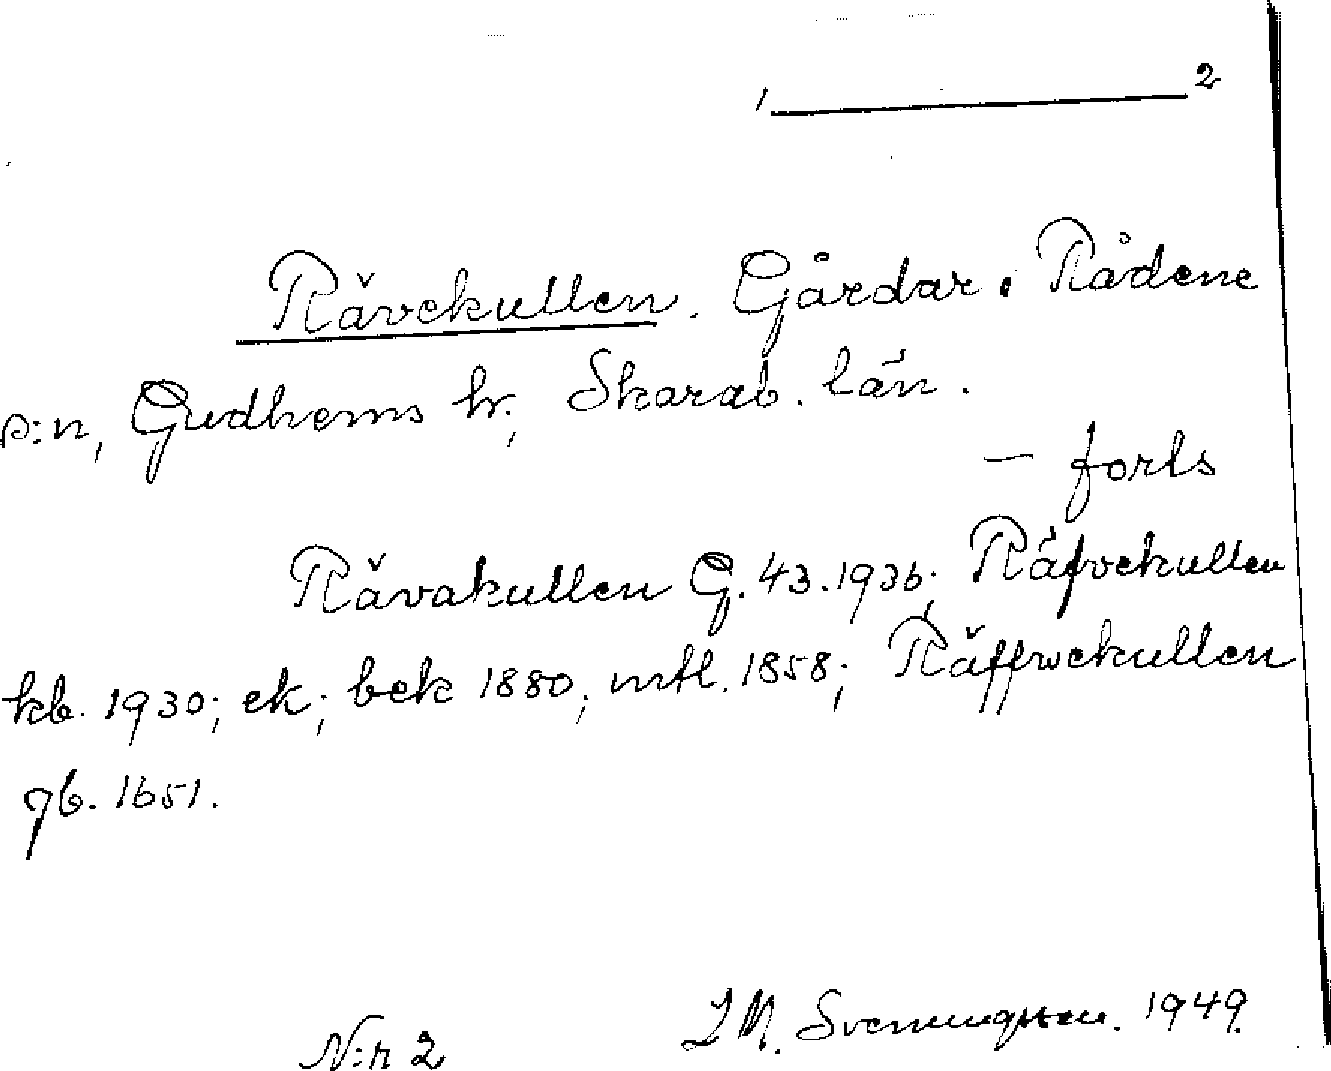 , 2
Rävekullen. Gårdar i Rådene
s:n, Gudhems hr, Skarab. län.
— forts
Rävakullen G. 43. 1936; Räfvekullen
kb. 1930; ek; bek 1880; mtl. 1858; Räffwekullen
gb. 1651.
N:r 2 Svenningsson. 1949.